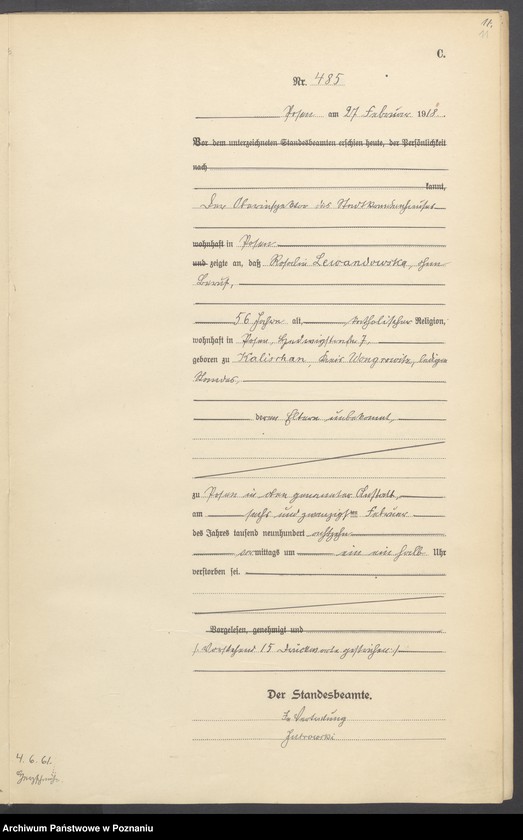 11.
11
C.
Nr. 485
Posen am 27 Februar 1918.
Vor dem unterzeichneten Standesbeamten erschien heute, der Persönlichkeit
nach
kannt,
Der Oberinspektor des Stadtkrankenhauses
wohnhaft in Posen
und zeigte an, daß Rosalie Lewandowska, ohne
Beruf,
56 Jahre alt, katholischer Religion,
wohnhaft in Posen, Hedwigstraße 7,
geboren zu Kalischan, Kreis Wongrowitz, ledigen
Standes,
deren Eltern unbekannt,
zu Posen in oben genannter Anstalt,
am sechs und zwanzigsten Februar
des Jahres tausend neunhundert achtzehn
vormittags um ein ein halb Uhr
verstorben sei.
Vorgelesen, genehmigt und
/: Vorstehend 15 Druckworte gestrichen :/
Der Standesbeamte.
In Vertretung
4. 6. 61.
Archiwum Państwowe w Poznaniu